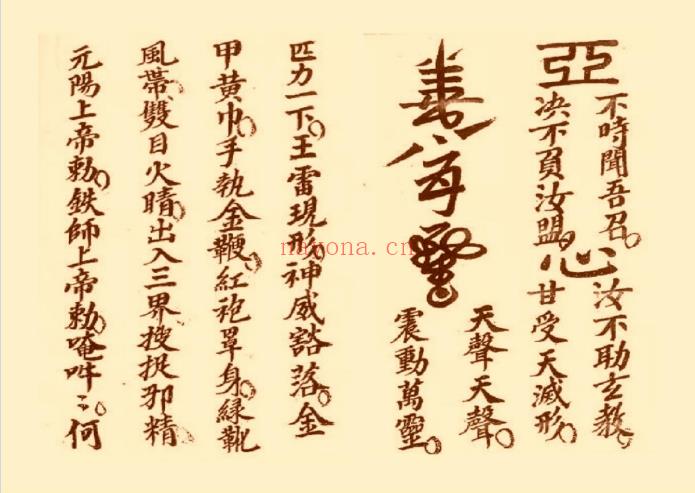 亞
不時聞吾召。
决不負汝盟。
心
汝不助玄教。
甘受天滅形。
天聲天聲。
震動萬靈。
匹力一下。王雷現形。神威豁落。金
甲黃巾。手執金鞭。紅袍罩身。緑靴
風帶。雙目火睛。出入三界。搜捉邪精。
元陽上帝勅。鉄師上帝勅。唵吽〻。何
nayona.cn